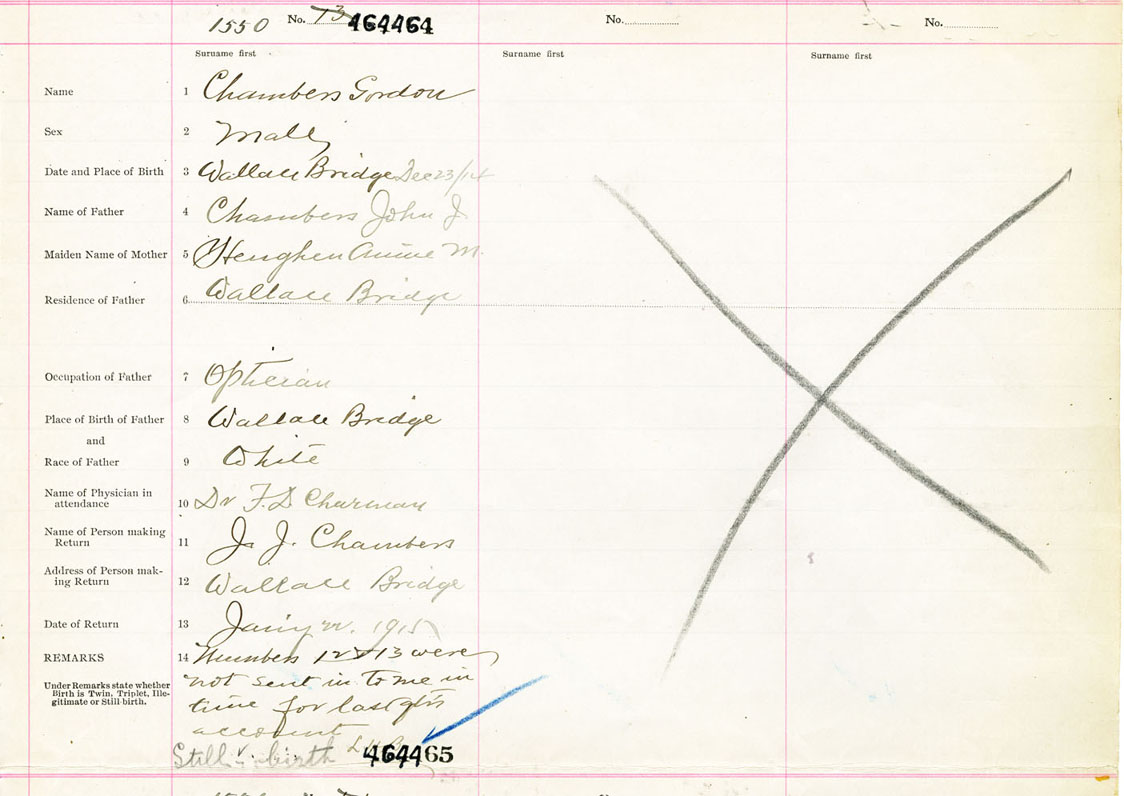 1550 No. 13 464464 No. No.
Surname first Surname first Surname first
Name 1 Chambers Gordon
Sex 2 Male
Date and Place of Birth 3 Wallace Bridge Dec 23/14
Name of Father 4 Chambers John J.
Maiden Name of Mother 5 Annie M.
Residence of Father 6 Wallace Bridge
Occupation of Father 7 Optician
Place of Birth of Father 8 Wallace Bridge
and
Race of Father 9 White
Name of Physician in
attendance 10 Dr F.D Charman
Name of Person making
Return 11 J. J. Chambers
Address of Person mak-
ing Return 12 Wallace Bridge
Date of Return 13 1915
REMARKS 14 Numbers 12 & 13 were
Under Remarks state whether not sent in to me in
Birth is Twin, Triplet, Ille-
gitimate or Still-birth. time for last qtrs
account
Still birth 464465